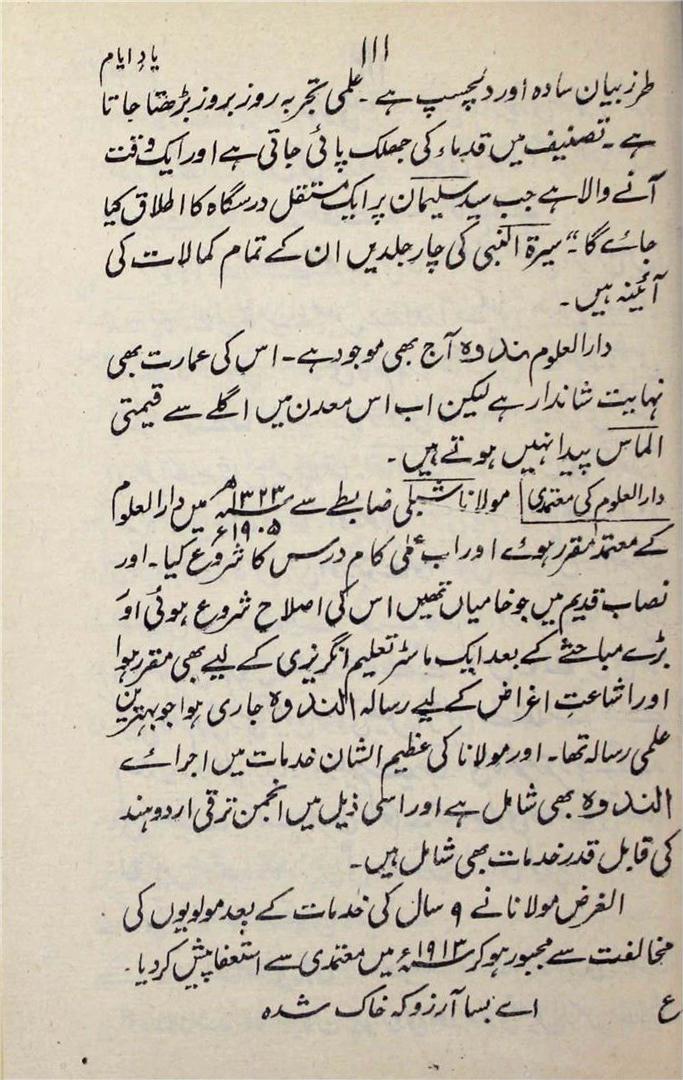 یادِ ایام
۱۱۱
طرز بیان سادہ اور دلچسپ ہے۔ علمی تجربہ روز بروز بڑھتا جاتا
ہے۔ تصنیف میں قدماء کی جھلک پائی جاتی ہے اور ایک وقت
آنے والا ہے جب سید سلیمان پر ایک مستقل درسگاہ کا اطلاق کیا
جائے گا۔" سیرۃ النبی کی چار جلدیں ان کے تمام کمالات کی
آئینہ ہیں۔
دارالعلوم ندوہ آج بھی موجود ہے۔ اس کی عمارت بھی
نہایت شاندار ہے لیکن اب اس معدن میں اگلے سے قیمتی
الماس پیدا نہیں ہوتے ہیں۔
دارالعلوم کی معتمدی مولانا شبلی ضابطے سے ۱۳۲۳ھ ۱۹۰۵ء میں دارالعلوم
کے معتمد مقرر ہوئے اور اب عملی کام درس کا شروع کیا۔ اور
نصاب قدیم میں جو خامیاں تھیں اس کی اصلاح شروع ہوئی اور
بڑے مباحثے کے بعد ایک ماسٹر تعلیم انگریزی کے لیے بھی مقرر ہوا
اور اشاعتِ اغراض کے لیے رسالہ الندوہ جاری ہوا جو بہترین
علمی رسالہ تھا۔ اور مولانا کی عظیم الشان خدمات میں اجرائے
الندوہ بھی شامل ہے اور اسی ذیل میں انجمن ترقی اردو ہند
کی قابل قدر خدمات بھی شامل ہیں۔
الغرض مولانا نے ۹ سال کی خدمات کے بعد مولویوں کی
مخالفت سے مجبور ہو کر ۱۹۱۳ء میں معتمدی سے استعفا پیش کر دیا۔
ع اے بسا آرزو کہ خاک شدہ